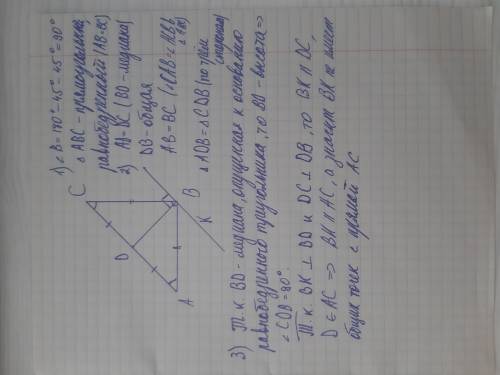 1) ∠B = 180° - 45° - 45° = 90°
△ABC - прямоугольный,
равнобедренный (AB=BC)
2) AD = DC (BD - медиана)
DB - общая
AB = BC
△ADB = △CDB (по трём
сторонам)
C
D
A
B
K
3) Т.к BD - медиана, опущенная к основанию
равнобедренного треугольника, то BD - высота ⇒
∠CDB = 90°.
Т.к. BK ⊥ BD и DC ⊥ DB, то BK ∥ DC,
D ∈ AC ⇒ BK ∥ AC, а значит BK не имеет
общих точек с прямой AC